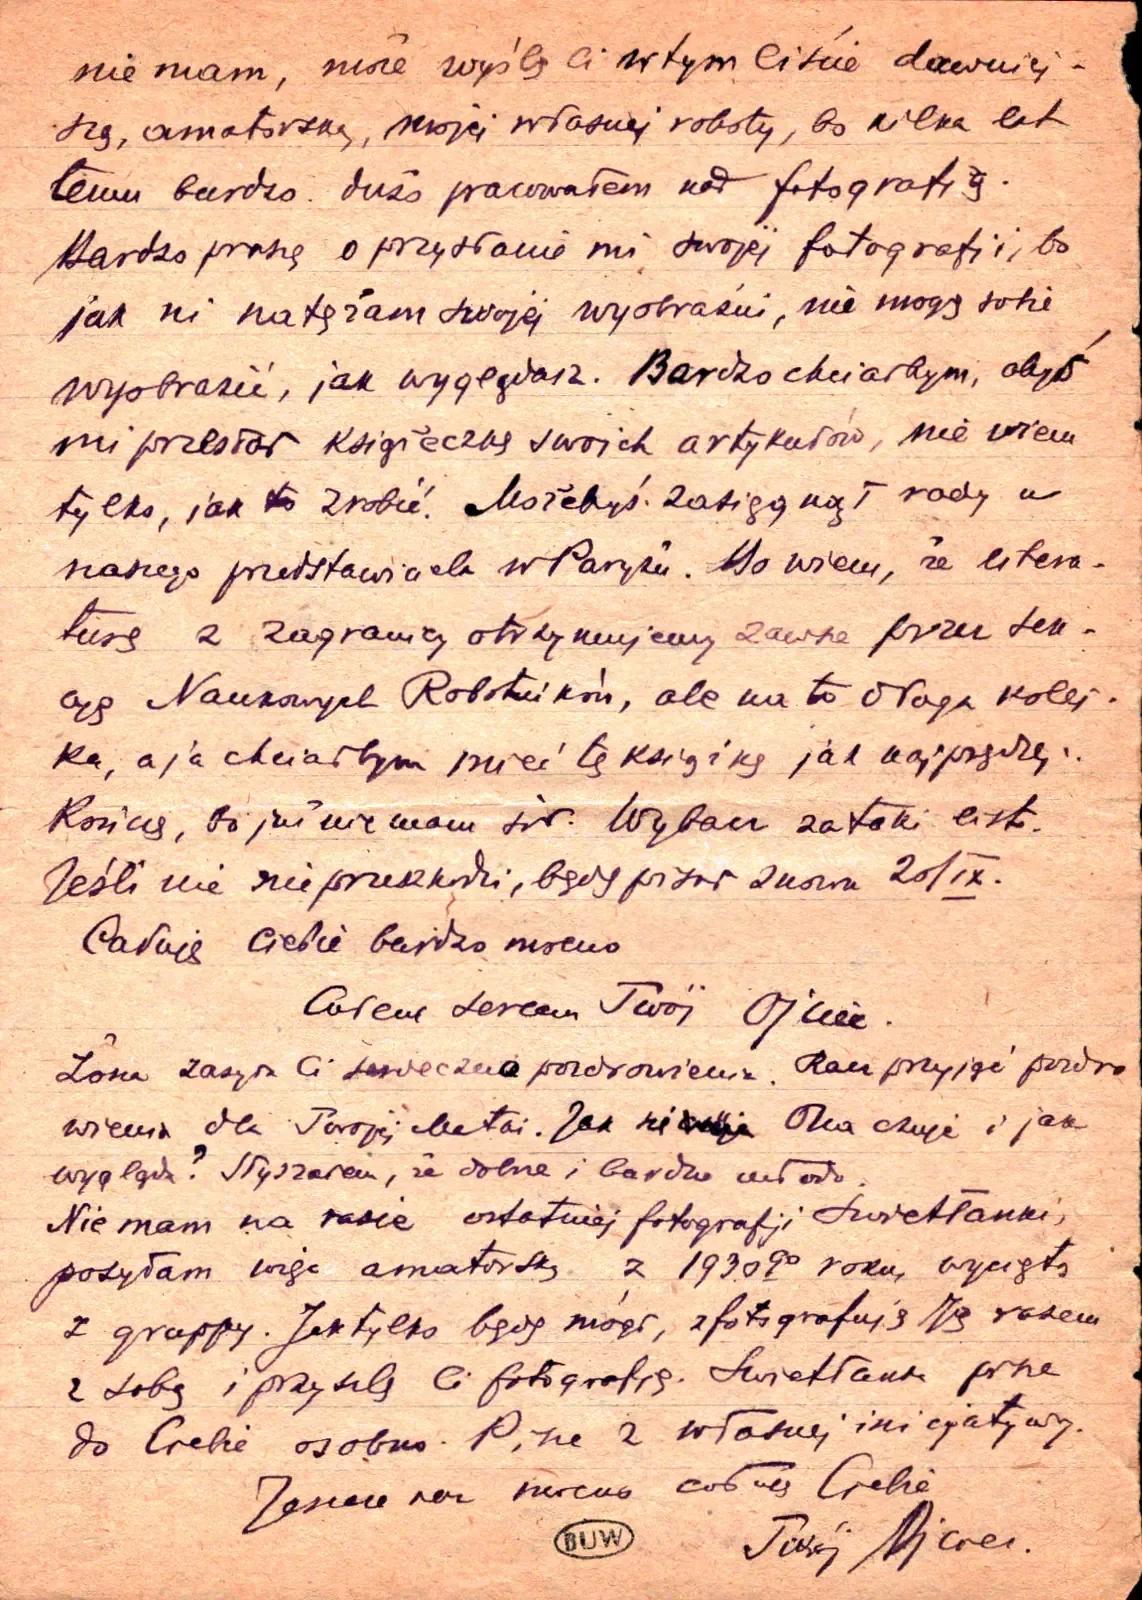 nie mam, może wyślę Ci w tym liście dawniej-
szą, amatorską, mojej własnej roboty, bo kilka lat
temu bardzo dużo pracowałem nad fotografią.
Bardzo proszę o przysłanie mi swojej fotografji, bo
jak ni natężam swojej wyobraźni, nie mogę sobie
wyobrazić, jak wyglądasz. Bardzo chciałbym, abyś
mi przesłał książeczkę swoich artykułów, nie wiem
tylko, jak to zrobić. Możebyś zasięgnął rady u
naszego przedstawiciela w Paryżu. Bo wiem, że litera-
turę z zagranicy otrzymujemy zawsze przez sek-
cję Naukowych Robotników, ale na to długa kolej-
ka, a ja chciałbym mieć tę książkę jak najprędzej.
Kończę, bo już nie mam sił. Wybacz za taki list.
Jeśli nic nie przeszkodzi, będę pisał znowu 20/IX.
Całuję Ciebie bardzo mocno
Całem sercem Twój Ojciec.
Żona zasyła Ci serdeczne pozdrowienia. Racz przyjąć pozdro
wienia dla Twojej Matki. Jak się Ona czuje i jak
wygląda? Słyszałem, że dobrze i bardzo młodo.
Nie mam na razie ostatniej fotografji Swietłanki,
posyłam więc amatorską z 1930go roku, wyciętą
z gruppy. Jak tylko będę mógł, sfotografuję Ją razem
z sobą i przyszlę Ci fotografję. Swietłanka pisze
do Ciebie osobno. Pisze z własnej inicjatywy.
Jeszcze raz mocno całuję Ciebie
Twój Ojciec.
BUW